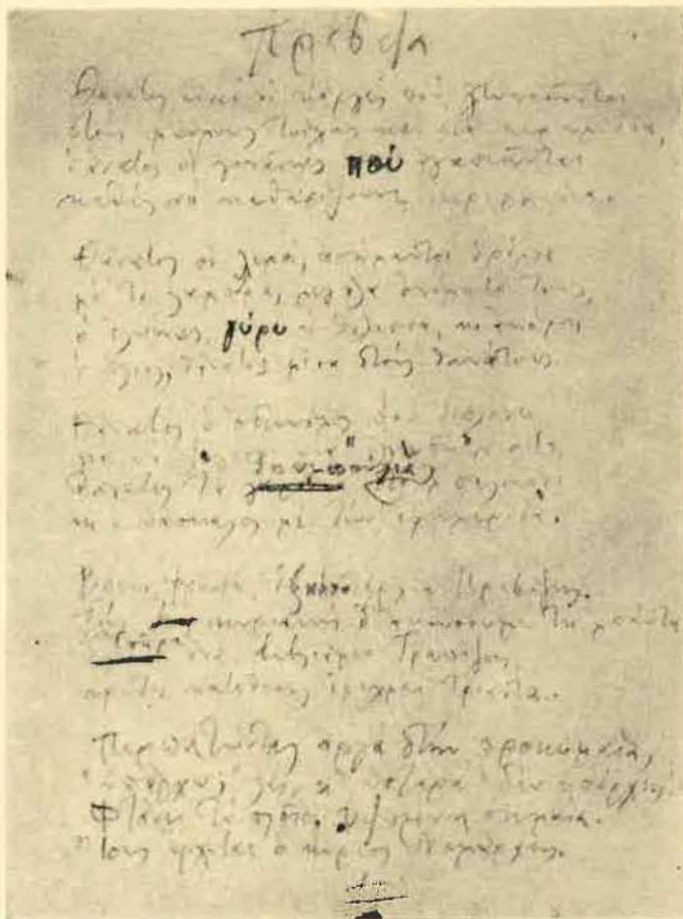 Πρέβεζα
Θάνατος είναι οἱ κάργες ποὺ χτυπιοῦνται
στοὺς μαύρους τοίχους καὶ στὰ κεραμίδια,
θάνατος οἱ γυναῖκες ποὺ ἀγαπιοῦνται
καθὼς νὰ καθαρίζουνε
Θάνατος οἱ λεροί, ἀσήμαντοι δρόμοι
μὲ τὰ λαμπρά, μεγάλα ὀνόματά τους,
ὁ ἐλαιώνας, γύρω ἡ θάλασσα, κι ἀκόμη
ὁ ἥλιος, θάνατος μέσα στοὺς θανάτους.
Θάνατος ὁ ἀστυνόμος ποὺ διπλώνει
γιὰ νὰ
ζουμπούλια
θάνατος τὰ
κι ὁ δάσκαλος μὲ τὴν ἐφημερίδα.
Βάσις, Φρουρά, Πρεβέζης.
Τὴν Κυριακὴ θ' ἀκούσουμε τὴ μπάντα
Ἐπῆρα ἕνα βιβλιάριο Τραπέζης,
πρώτη κατάθεσις δραχμαὶ τριάντα.
Περπατώντας ἀργὰ στὴν προκυμαία,
"ὑπάρχω;" λές, κ' ὕστερα: "δὲν ὑπάρχεις!"
Φτάνει τὸ πλοῖο. Ὑψωμένη σημαία.
Ἴσως ἔρχεται ὁ κύριος Νομάρχης.